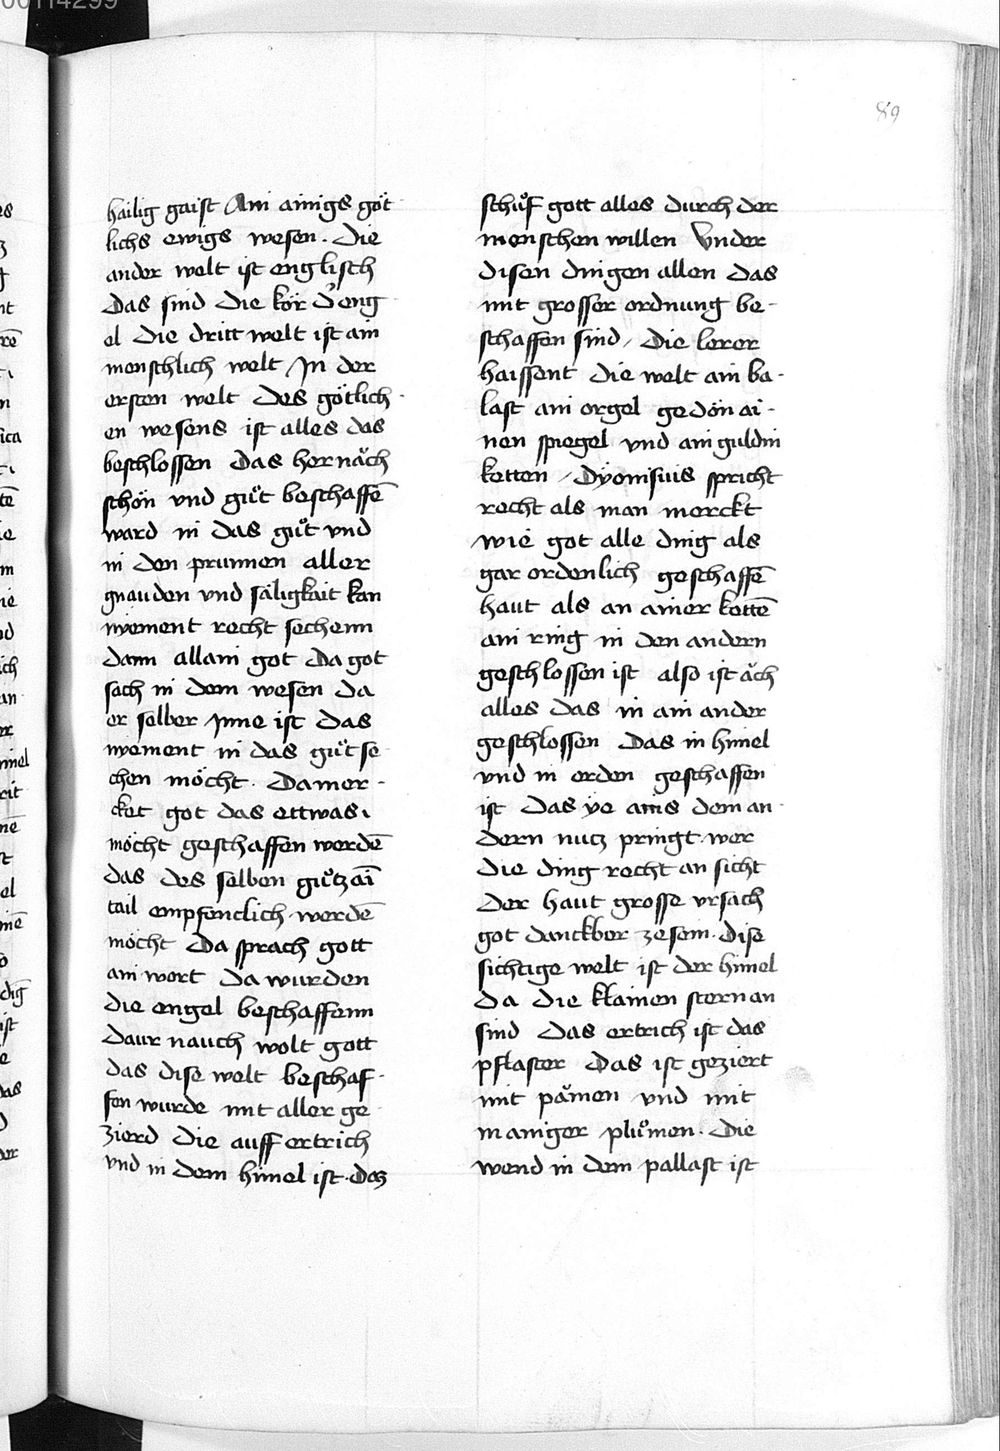 89
hailig gaist Ain ainigs göt
lichs ewigs wesen. Die
ander welt ist englisch
Das sind die kör d' eng
el Die dritt welt ist ain
menschlich welt In der
ersten welt des götlich-
en wesens ist alles das
beschlossen Das hernäch
schön vnd gůt beschaffē
ward in das gůt vnd
in den prunnen aller
gnauden vnd säligkait kan
niement recht sechenn
dann allain got Da got
sach in dem wesen da
er selber Inne ist das
niement in das gůt se
chen möcht. Da mer-
cket got das ettwas
möcht geschaffen werdē
das des selben gůtz aī
tail empfenclich werdē
möcht Da sprach gott
ain wort Da wurden
die engel beschaffenn
Daur nauch wolt gott
das dise welt beschaf-
fen wurde mit aller ge
zierd die auff ertrich
vnd in dem himel ist. Daz
schůf gott alles durch der
menschen willen Vnder
disen dingen allen das
mit grosser ordnung be-
schaffen sind / Die lerer
haissent die welt ain ba-
last ain orgel gedön ai-
nen spiegel vnd ain guldin
ketten / Dyonisius spricht
recht als man merckt
wie got alle ding als
gar ordenlich geschaffē
haut als an ainer kettē
ain ring in den andern
geschlossen ist also ist äch
alles das in ain ander
geschlossen Das in himel
vnd in erden geschaffen
ist das ye ains dem an-
dern nutz pringt. wer
die ding recht an sicht
Der haut grosse vrsach
got danckber ze sein. Dise
sichtige welt ist der himel
Da die klainen stern an
sind Das ertrich ist das
pflaster Das ist geziert
mit pämen vnd mit
maniger plůmen. Die
wend in dem pallast ist